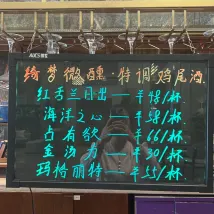 绮梦微醺·特调鸡尾酒
红香兰日出——¥48/杯.
海洋之心——¥58/杯.
占有欲——¥66/杯.
金汤力——¥30/杯.
玛格丽特——¥55/杯.